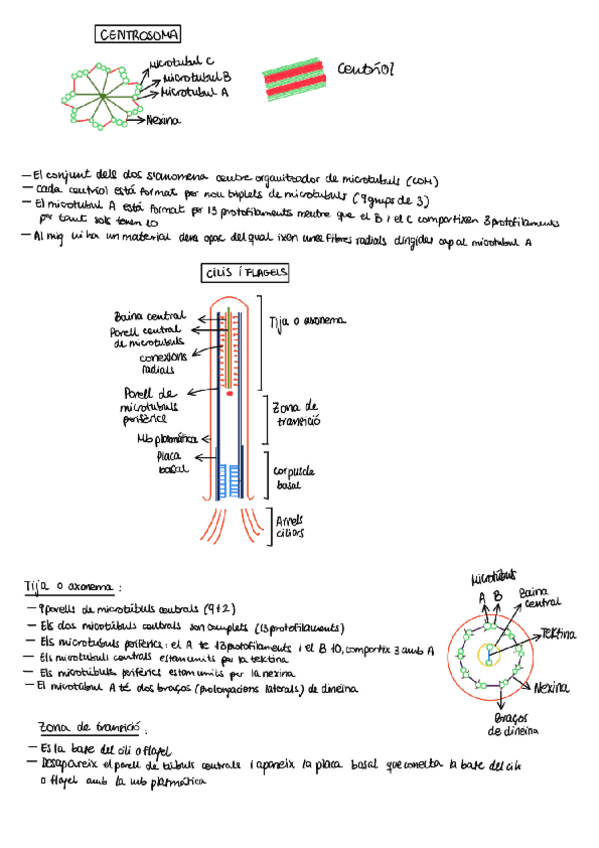 CENTROSOMA
Microtubul C
Microtubul B
Microtubul A
Nexina
Centriol
- El conjunt dels dos s'anomena centre organitzador de microtubuls (COM)
- Cada centriol està format per nou triplets de microtubuls (9 grups de 3)
- El microtubul A està format per 13 protofilaments mentre que el B i el C compartixen 3 protofilaments
per tant sols tenen 10
- Al mig hi ha un material dens opac del qual ixen unes fibres radials dirigides cap al microtubul A
CILIS I FLAGELS
Baina central
Parell central
de microtubuls
conexions
radials
Parell de
microtubuls
perifèrics
Mb plasmàtica
Placa
basal
Tija o axonema
Zona de
transició
Corpuscle
basal
Arrels
ciliars
Tija o axonema:
- 9 parells de microtúbuls centrals (9+2)
- Els dos microtúbuls centrals son complets (13 protofilaments)
- Els microtubuls perifèrics: el A te 13 protofilaments i el B 10, compartix 3 amb A
- Els microtubuls centrals estan units per la tektina
- Els microtúbuls perifèrics estan units per la nexina
- El microtúbul A té dos braços (prolongacions laterals) de dineïna
Microtúbuls
A B
Baina
central
Tektina
Nexina
Braços
de dineina
Zona de transició:
- Es la base del cili o flagel
- Desapareix el parell de túbuls centrals i apareix la placa basal que conecta la base del cili
o flagel amb la mb plasmàtica